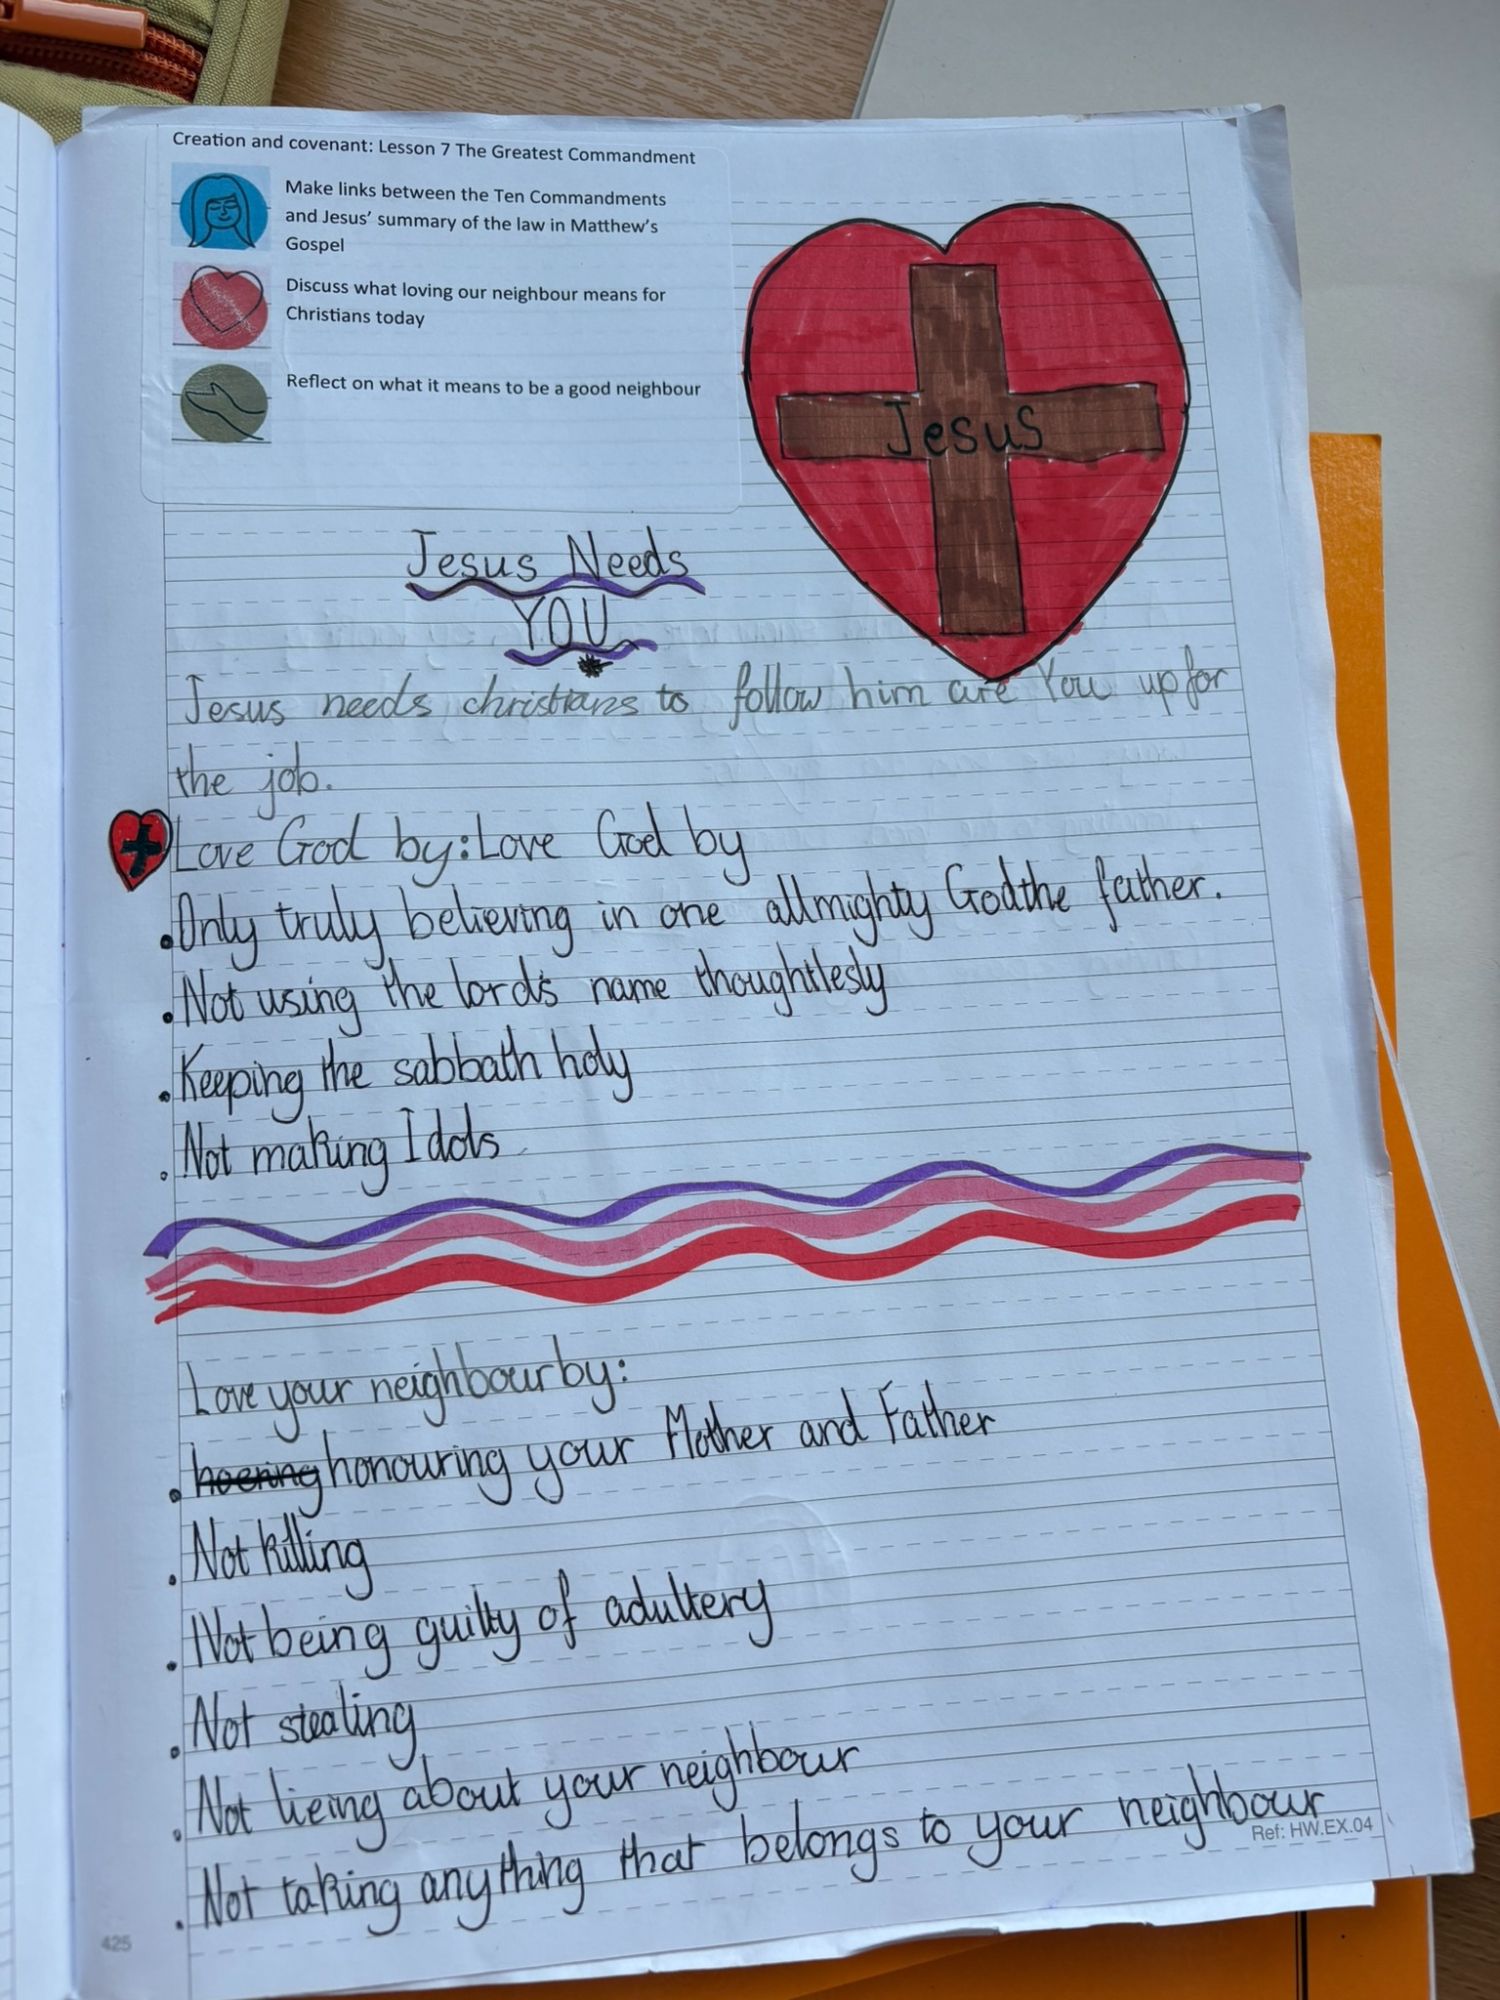 Creation and covenant: Lesson 7 The Greatest Commandment
Make links between the Ten Commandments
and Jesus' summary of the law in Matthew's
Gospel
Discuss what loving our neighbour means for
Christians today
Reflect on what it means to be a good neighbour
Jesus
Jesus Needs
YOU
Jesus needs christians to follow him are You up for
the job.
Love God by: Love God by
• Only truly believing in one allmighty God the father.
• Not using the lord's name thoughtlesly
• Keeping the sabbath holy
• Not making Idols
Love your neighbour by:
• hoering honouring your Mother and Father
• Not killing
• Not being guilty of adultery
• Not stealing
• Not lieing about your neighbour
• Not taking anything that belongs to your neighbour
Ref: HW.EX.04
425